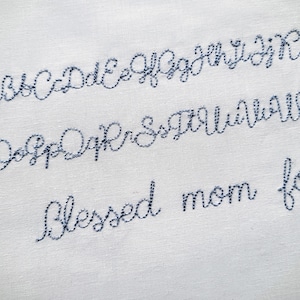 BbCcDdEeFfGgHhIiJjK
OoPpQqRrSsTtUuVvW
Blessed mom fo